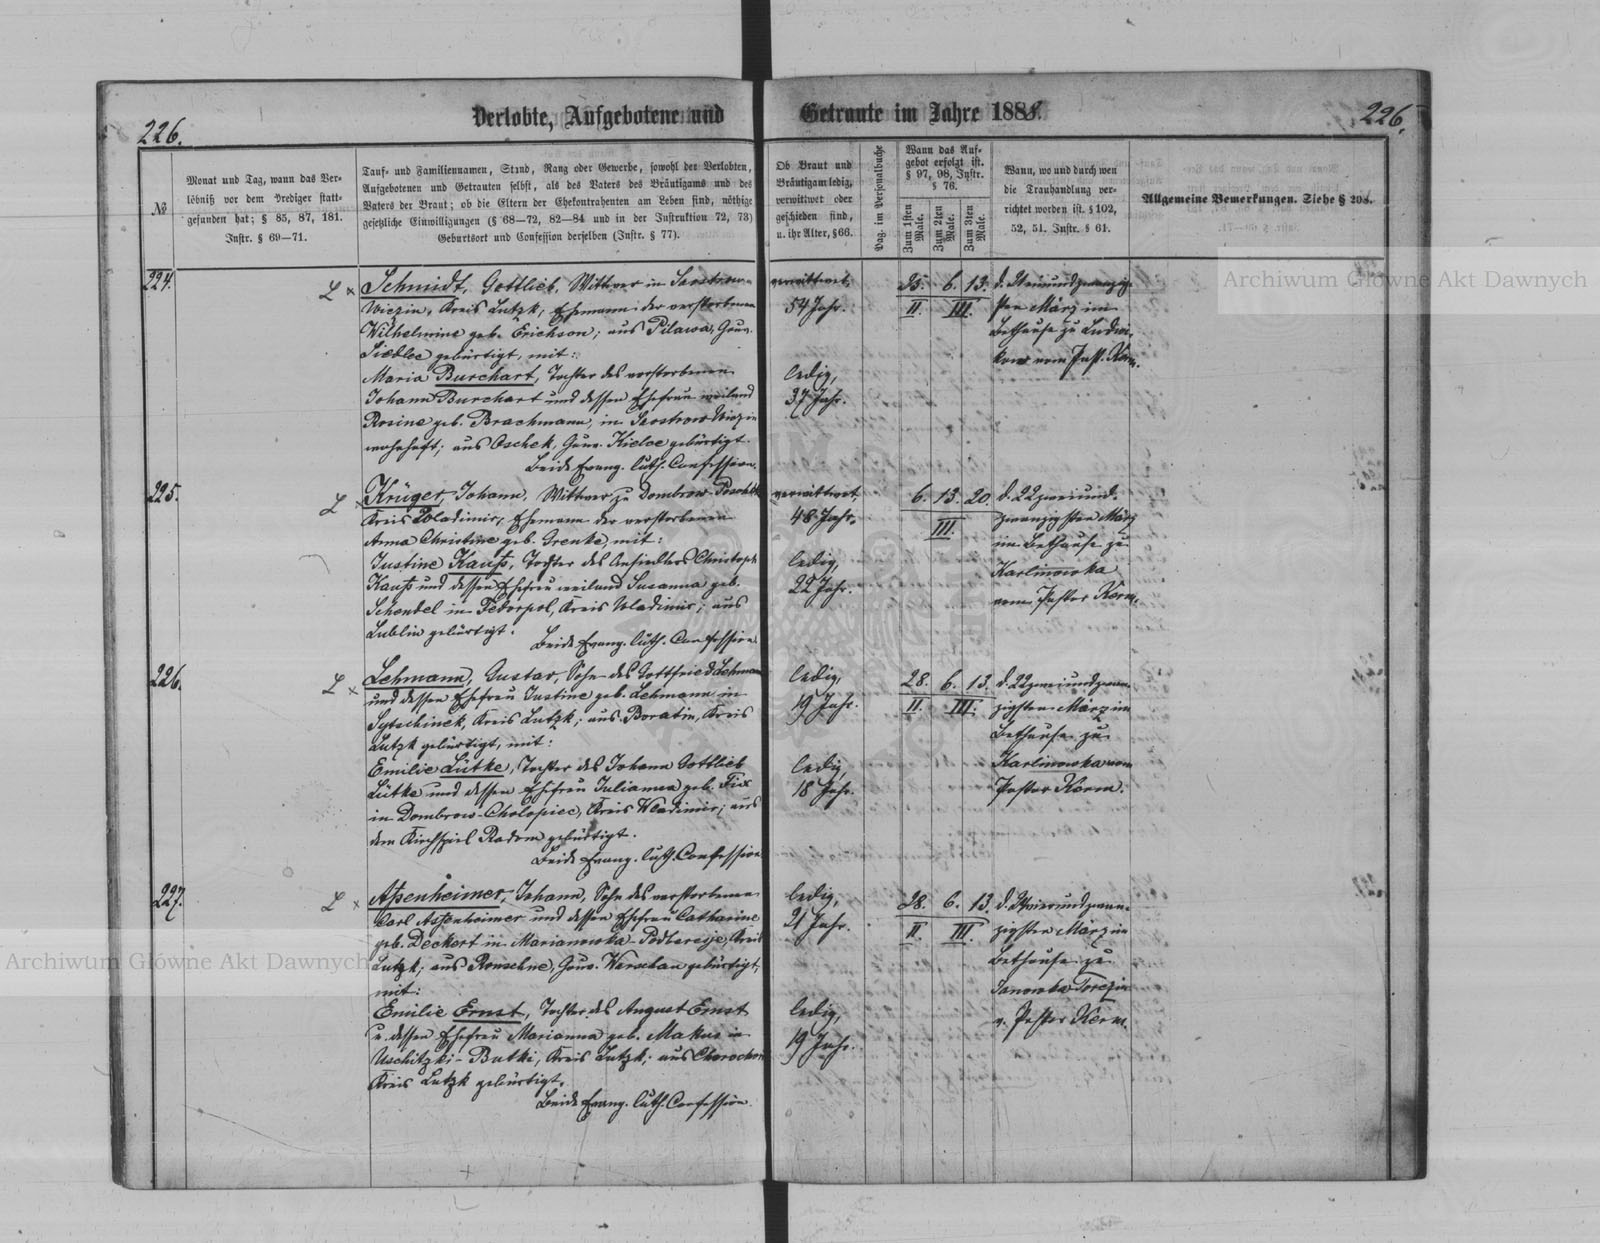 226.
Verlobte, Aufgebotene und Getraute im Jahre 1888.
226.
№
Monat und Tag, wann das Ver-
löbniß vor dem Prediger statt-
gefunden hat; § 85, 87, 181.
Instr. § 69—71.
Tauf- und Familiennamen, Stand, Rang oder Gewerbe, sowohl der Verlobten,
Aufgebotenen und Getrauten selbst, als des Vaters des Bräutigams und des
Vaters der Braut; ob die Eltern der Ehekontrahenten am Leben sind, nöthige
gesetzliche Einwilligungen (§ 68—72, 82—84 und in der Instruktion 72, 73)
Geburtsort und Confession derselben (Instr. § 77).
Ob Braut und
Bräutigam ledig,
verwittwet oder
geschieden sind,
u. ihr Alter, § 66.
Pag. im Personalbuche
Wann das Auf-
gebot erfolgt ist.
§ 97, 98, Instr.
§ 76.
Zum 1sten Male.
Zum 2ten Male.
Zum 3ten Male.
Wann, wo und durch wen
die Trauhandlung ver-
richtet worden ist. § 102,
52, 51. Instr. § 61.
Allgemeine Bemerkungen. Siehe § 208.
224.
Schmidt, Gottlieb, Wittwer in
Kreis Lutzk, Ehemann der verstorbenen
Wilhelmine geb. Erichson; aus Pilawa, Gouv.
Siedlce gebürtigt, mit:
Maria Burchart, Tochter des verstorbenen
Johann Burchart und dessen Ehefrau weiland
Rosine geb. Brachmann, in
wohnhaft; aus Oschek, Gouv. Kielce gebürtigt.
Beide Evang. luth. Confession.
verwittwet,
54 Jahr.
ledig,
37 Jahr.
6. 13.
II. III.
d.
sten März im
Bethause zu
vom Past. Kerm.
225.
Krüger, Johann, Wittwer zu Dombrow-
Kreis Wladimir, Ehemann der verstorbenen
Anna Christine geb. Grenke, mit:
Justine Kauss, Tochter des Ansiedlers Christoph
Kauss und dessen Ehefrau weiland Susanna geb.
Schendel in Fedorpol, Kreis Wladimir; aus
Lublin gebürtigt.
Beide Evang. luth. Confession
verwittwet,
48 Jahr,
ledig,
22 Jahr.
6. 13. 20.
III.
d. 22 zweiund-
zwanzigsten März
im Bethause zu
Karlinowka
vom Pastor Kerm.
226.
Lehmann, Gustav, Sohn des Gottfried Lehmann
und dessen Ehefrau Justine geb. Lehmann in
Kreis Lutzk; aus Boratin, Kreis
Lutzk gebürtigt, mit:
Emilie Lütke, Tochter des Johann Gottlieb
Lütke und dessen Ehefrau Julianna geb. Fix
in Dombrow-Cholopiec, Kreis Wladimir; aus
dem Kirchspiel Radom gebürtigt.
Beide Evang. luth. Confession
ledig,
19 Jahr.
ledig,
18 Jahr.
28. 6. 13.
II. III.
d. 22 zweiundzwan-
zigsten März im
Bethause zu
Karlinowka vom
Pastor Kerm.
227.
Assenheimer, Johann, Sohn des verstorbenen
Carl Assenheimer und dessen Ehefrau Catharine
geb. Deckert in Marianowka-Podberesje, Kreis
Lutzk; aus Gouv. Warschau gebürtigt,
mit:
Emilie Ernst, Tochter des August Ernst
u. dessen Ehefrau Marianna geb. Makus in
Kreis Lutzk; aus
Kreis Lutzk gebürtigt.
Beide Evang. luth. Confession.
ledig,
21 Jahr.
ledig,
19 Jahr.
28. 6. 13.
II. III.
d.
zigsten März im
Bethause zu
Janowka Torczin
v. Pastor Kerm.
Archiwum Główne Akt Dawnych
Archiwum Główne Akt Dawnych